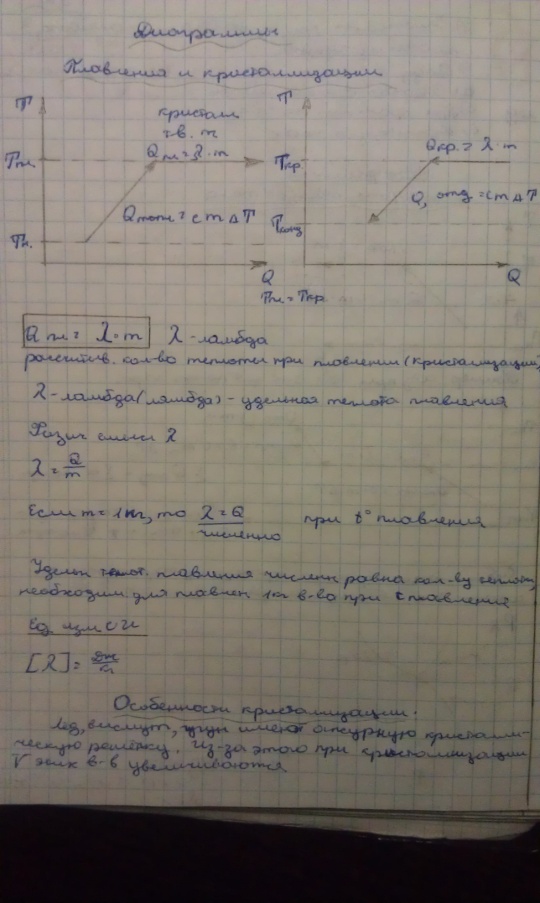 Диаграммы
Плавления и кристаллизации
T
кристал.
тв. т
Qпл = λ·m
Tпл.
Qнагр = cmΔT
Tн.
Q
T
Qкр. = λ·m
Tкр.
Q, отд = cmΔT
Q
Tпл = Tкр.
Qпл = λ·m λ - ламбда
рассчитыв. кол-во теплоты при плавлении (кристализации)
λ - ламбда (лямбда) - удельная теплота плавления
Физич смысл λ
λ = Q/m
Если m = 1кг, то λ = Q при t° плавления
численно
Удельн теплот. плавления числен равна кол-ву теплоты,
необходим. для плавлен 1кг в-ва при t плавлений
Ед изм СИ
[λ] = Дж/кг
Особенности кристализации.
Лёд, висмут, чугун имеют ажурную кристалли-
ческую решётку. Из-за этого при кристализации
V этих в-в увеличиваются